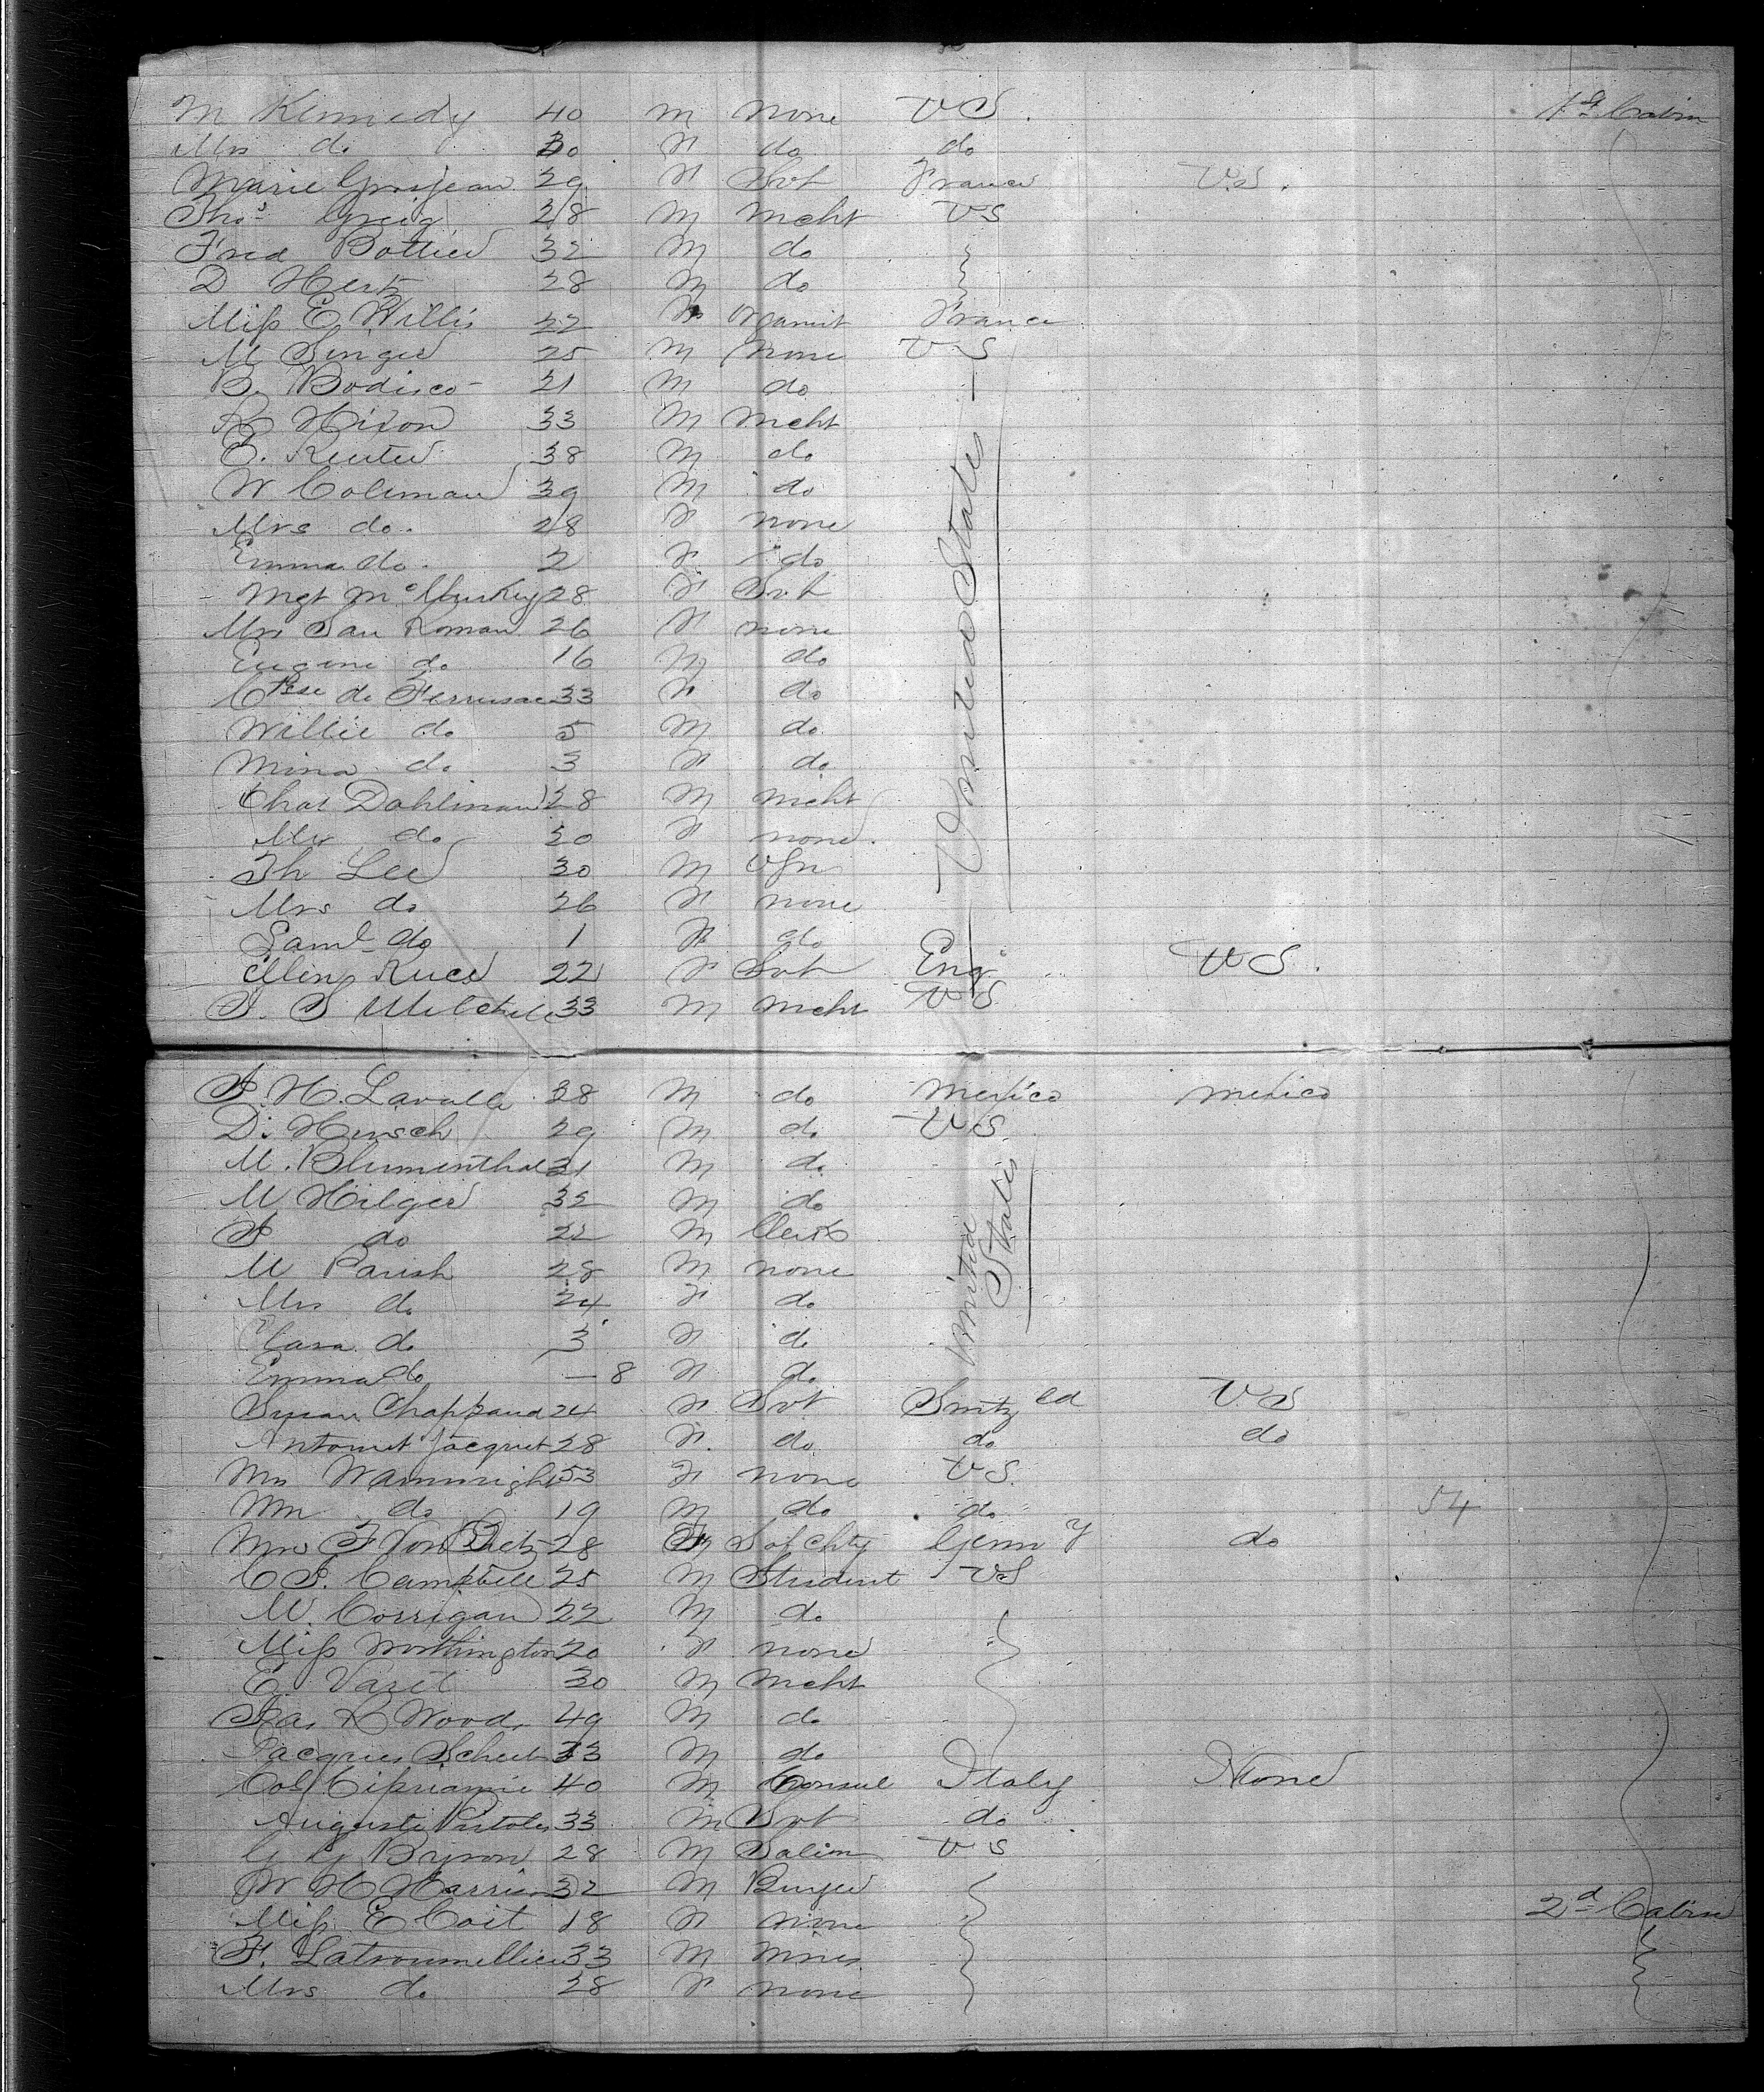 M Kennedy 40 M none US. 1st Cabin
Mrs do 30 F do do
Marie Grosjean 29 F Svt France U.S.
Thos Greig 28 M Mcht US
Fred Bottier 32 M do
D Hertz 28 M do
Miss E Willis 22 F France
M Singer 25 M none US
B. Bodisco 21 M do
R Hixon 33 M Mcht
E. Reuter 38 M do
W Coleman 39 M do
Mrs do. 28 F none
Emma do. 2 F do
Mgt 28 F Svt
Mrs San Roman 26 F none
Eugene do 16 M do
de Ferrusac 33 F do
Willie do 5 M do
Mina do 3 F do
Chas Dahlman 28 M Mcht
Mrs do 20 F none.
Th Lee 30 M
Mrs do 26 F none
Saml do 1 do
United States
Ellen 22 F Svt Eng US.
S. S 33 M Mcht US
P. H. Lavalle 38 M do Mexico Mexico
D. Hirsch 29 M do US.
M. Blumenthal 31 M do
M Hilger 32 M do
do 22 M Clerk
M Parish 28 M none
Mrs do 24 F do
Clara do 3 F do
Emma do — 8 F do
United States
Susan 24 F Svt US
Jacquet 28 F. do do do
Mrs Wainwright 53 F none US.
Wm do 19 M do do 54
Mrs F Von 28 S of Chty Germy do
C S. Campbell 25 M Student US
M. Corrigan 22 M do
Miss Worthington 20 F none
E Varet 30 M Mcht
R Wood 49 M do
Jacques 33 M do
Col Cipriani 40 M Consul Italy None
33 M Svt do
G G Bryson 28 M US
W H Harris 32 M
Miss E Coit 18 F none 2d Cabin
F. 33 M Miner
Mrs do 28 F none